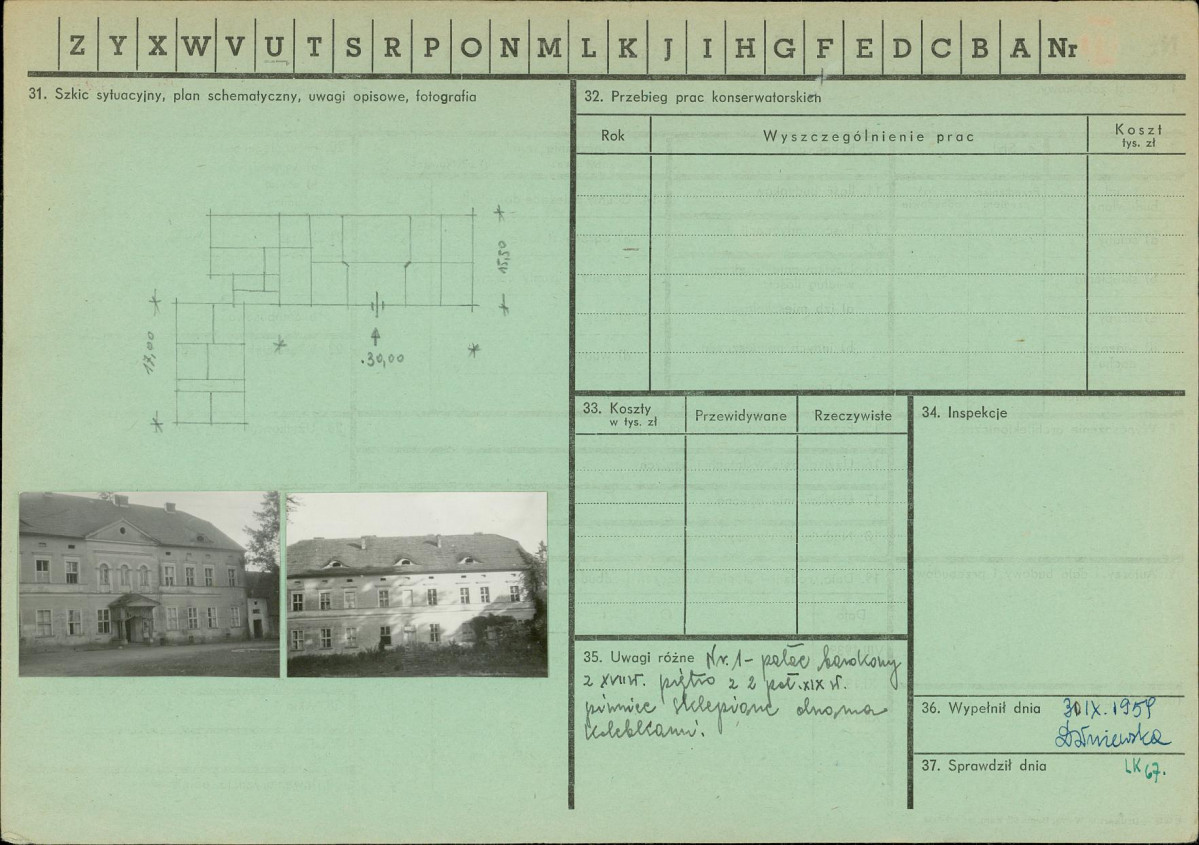 Z Y X W V U T S R P O N M L K J I H G F E D C B A Nr
31. Szkic sytuacyjny, plan schematyczny, uwagi opisowe, fotografia
15,50
17,00
30,00
32. Przebieg prac konserwatorskich
Rok
Wyszczególnienie prac
Koszt
tys. zł
33. Koszty
w tys. zł
Przewidywane
Rzeczywiste
34. Inspekcje
35. Uwagi różne Nr. 1 - pałac barokowy
z XVIII w. piętro z 2 poł. XIX w.
piwnice sklepione dwoma
kolebkami.
36. Wypełnił dnia
30 IX. 1959
37. Sprawdził dnia
LK 67.